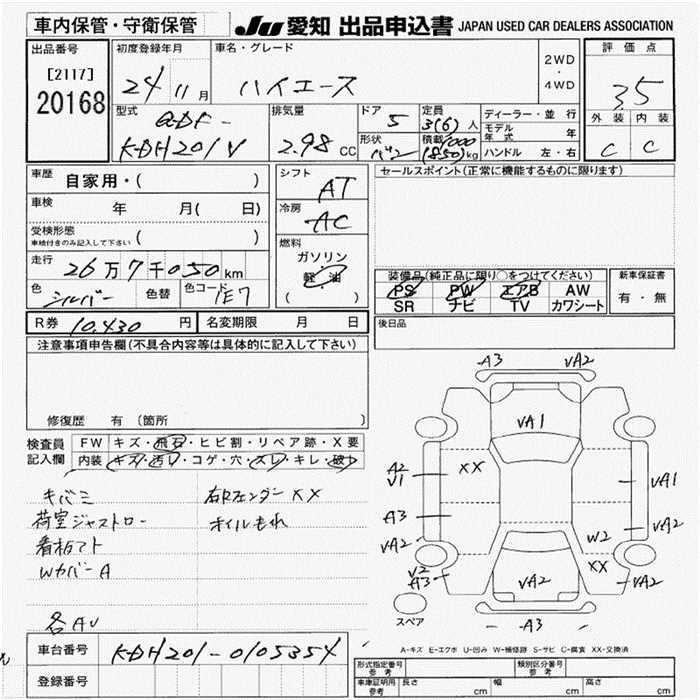 車内保管・守衛保管
JU 愛知 出品申込書 JAPAN USED CAR DEALERS ASSOCIATION
出品番号
[2117]
20168
初度登録年月
24 11月
車名・グレード
ハイエース
2WD
・
4WD
評価点
3.5
外装 内装
C C
型式
QDF-
KDH201V
排気量
2.98 CC
ドア 5
形状 バン
定員
3(6)人
積載 1000
(850)kg
ディーラー・並行
モデル年式 年
ハンドル 左・右
車歴 自家用・( )
車検 年 月( 日)
受検形態
車検付きのみ記入して下さい ( )
走行
26万7千050km
色 シルバー 色替 色コード 1E7
シフト
AT
冷房
AC
燃料
ガソリン
軽油
( )
セールスポイント(正常に機能するものに限ります)
装備品(純正品に限り○をつけてください)
PS PW エアB AW
SR ナビ TV カワシート
新車保証書
有・無
R券 10,430 円 名変期限 月 日
後日品
注意事項申告欄(不具合内容等は具体的に記入して下さい)
修復歴 有 〔箇所 〕
検査員
記入欄
FW キズ・飛石・ヒビ割・リペア跡・X要
内装 キズ・汚レ・コゲ・穴・スレ・キレ・破レ
キバミ
荷室ジャストロー
看板アト
WカバーA
各AU
右Rフェンダー XX
オイルもれ
A3 UA2
UA1
A2
U1
XX
UA1
A3
UA2
UA2
W2
U2
A3
XX
UA2
UA2
スペア
-A3-
A-キズ E-エクボ U-凹み W-補修跡 S-サビ C-腐食 XX-交換済
車台番号 KDH201-0105354
登録番号
形式指定番号
参考
類別区分番号
参考
車庫証明用
参考
長さ cm 幅 cm 高さ cm